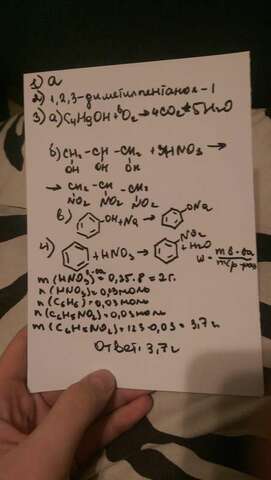 1) а
2) 1,2,3-диметилпентанол-1
3) а) C4H9OH+6O2→4CO2+5H2O
б) CH2-CH-CH2+3HNO3→
OH OH OH
→CH2-CH-CH2
NO2 NO2 NO2
в) OH+Na→ONa
4) +HNO3→NO2+H2O
w=m в-ва/m р-ра
m(HNO3)=0,25·8=2г.
n(HNO3)=0,03моль
n(C6H6)=0,03моль
n(C6H5NO2)=0,03моль
m(C6H5NO2)=123·0,03=3,7г
Ответ: 3,7г